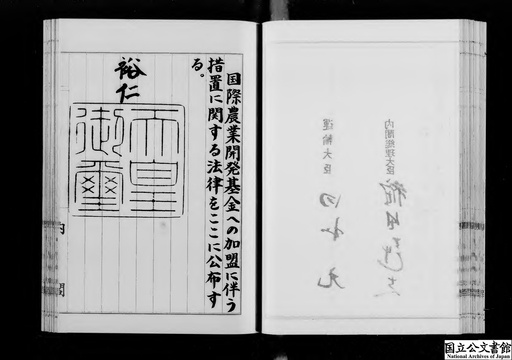 国際農業開発基金への加盟に伴う
措置に関する法律をここに公布す
る。
裕仁
天皇
御璽
内閣
内閣総理大臣
運輸大臣
国立公文書館
National Archives of Japan